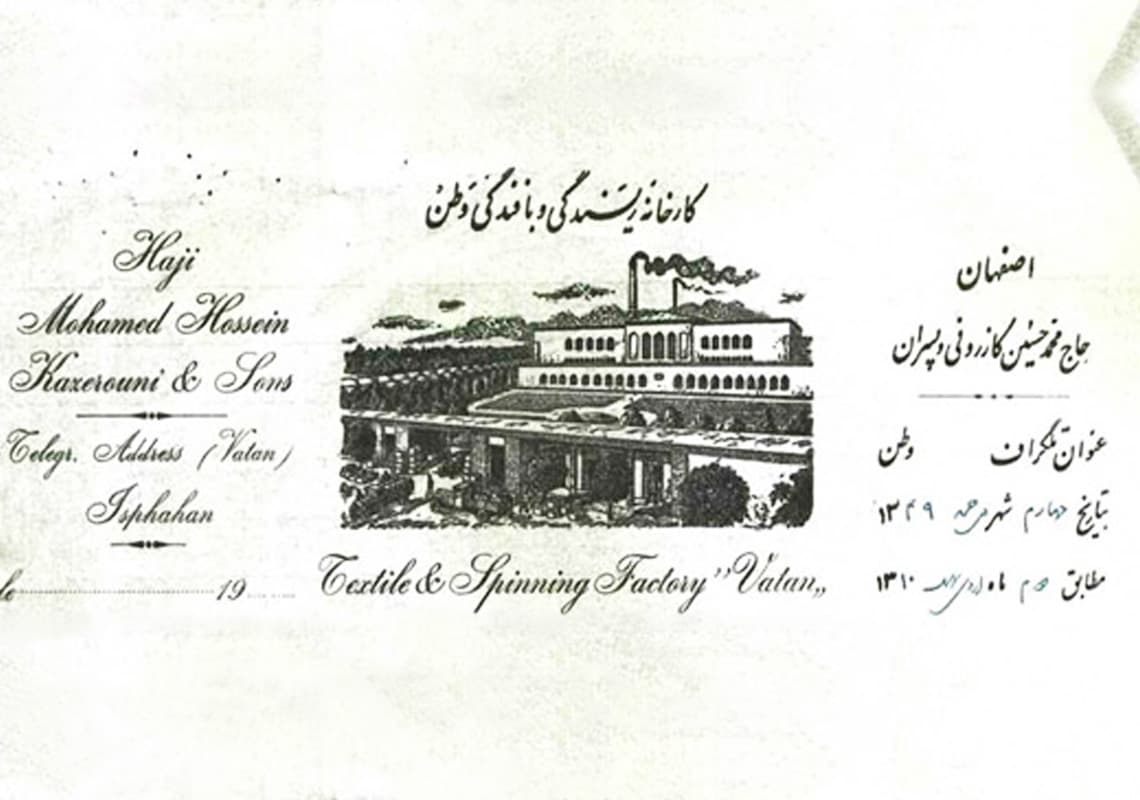 کارخانه ریسندگی و بافندگی وطن
Haji
Mohamed Hossein
Kazerouni & Sons
Telegr. Address (Vatan)
Isphahan
le 19
Textile & Spinning Factory ”Vatan„
اصفهان
حاج محمد حسین کازرونی و پسران
عنوان تلگراف وطن
بتاریخ چهارم شهر ۱۳۴۹
مطابق ماه ۱۳۱۰